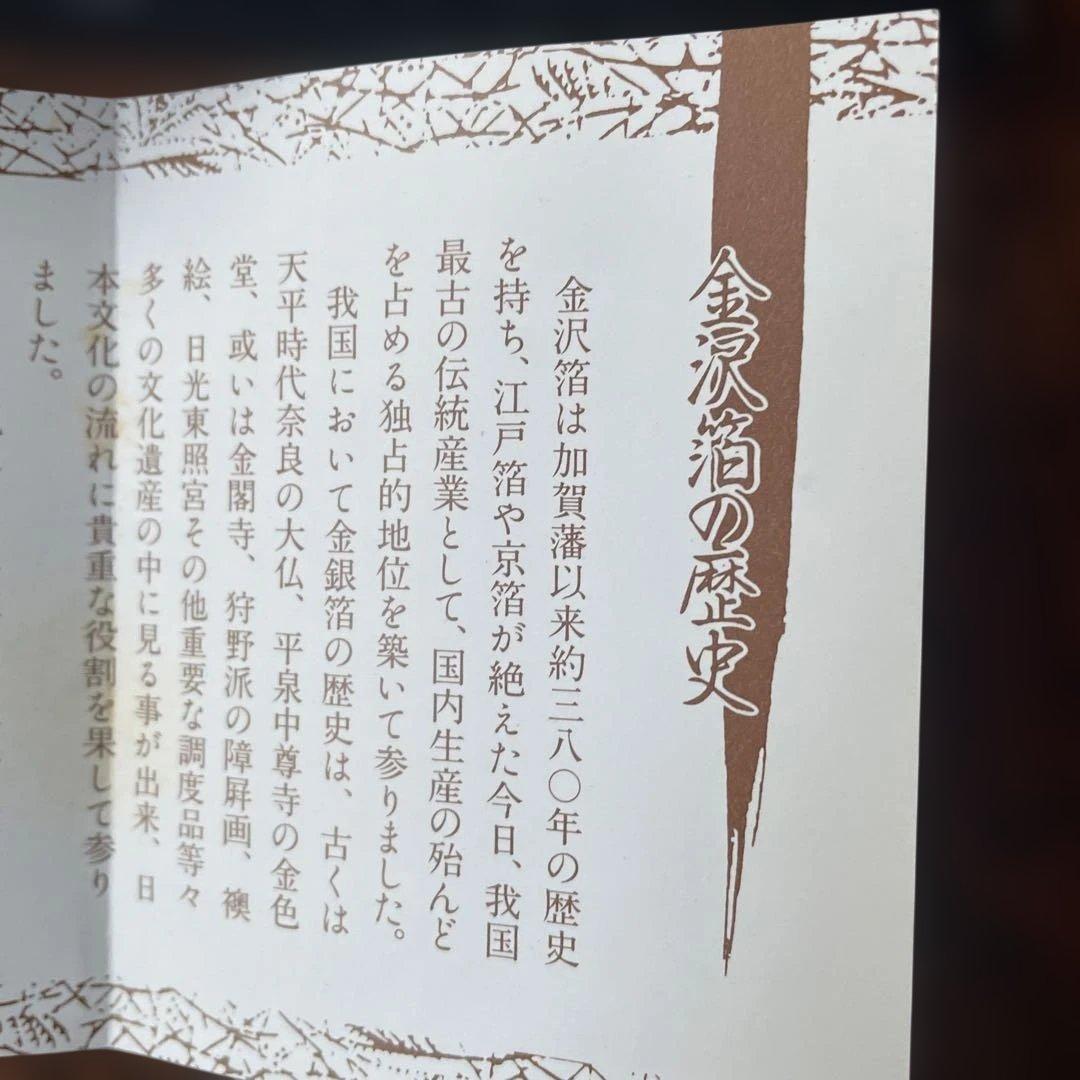 金沢箔の歴史
金沢箔は加賀藩以来約三八〇年の歴史
を持ち、江戸箔や京箔が絶えた今日、我国
最古の伝統産業として、国内生産の殆んど
を占める独占的地位を築いて参りました。
我国において金銀箔の歴史は、古くは
天平時代奈良の大仏、平泉中尊寺の金色
堂、或いは金閣寺、狩野派の障屏画、襖
絵、日光東照宮その他重要な調度品等々
多くの文化遺産の中に見る事が出来、日
本文化の流れに貴重な役割を果して参り
ました。